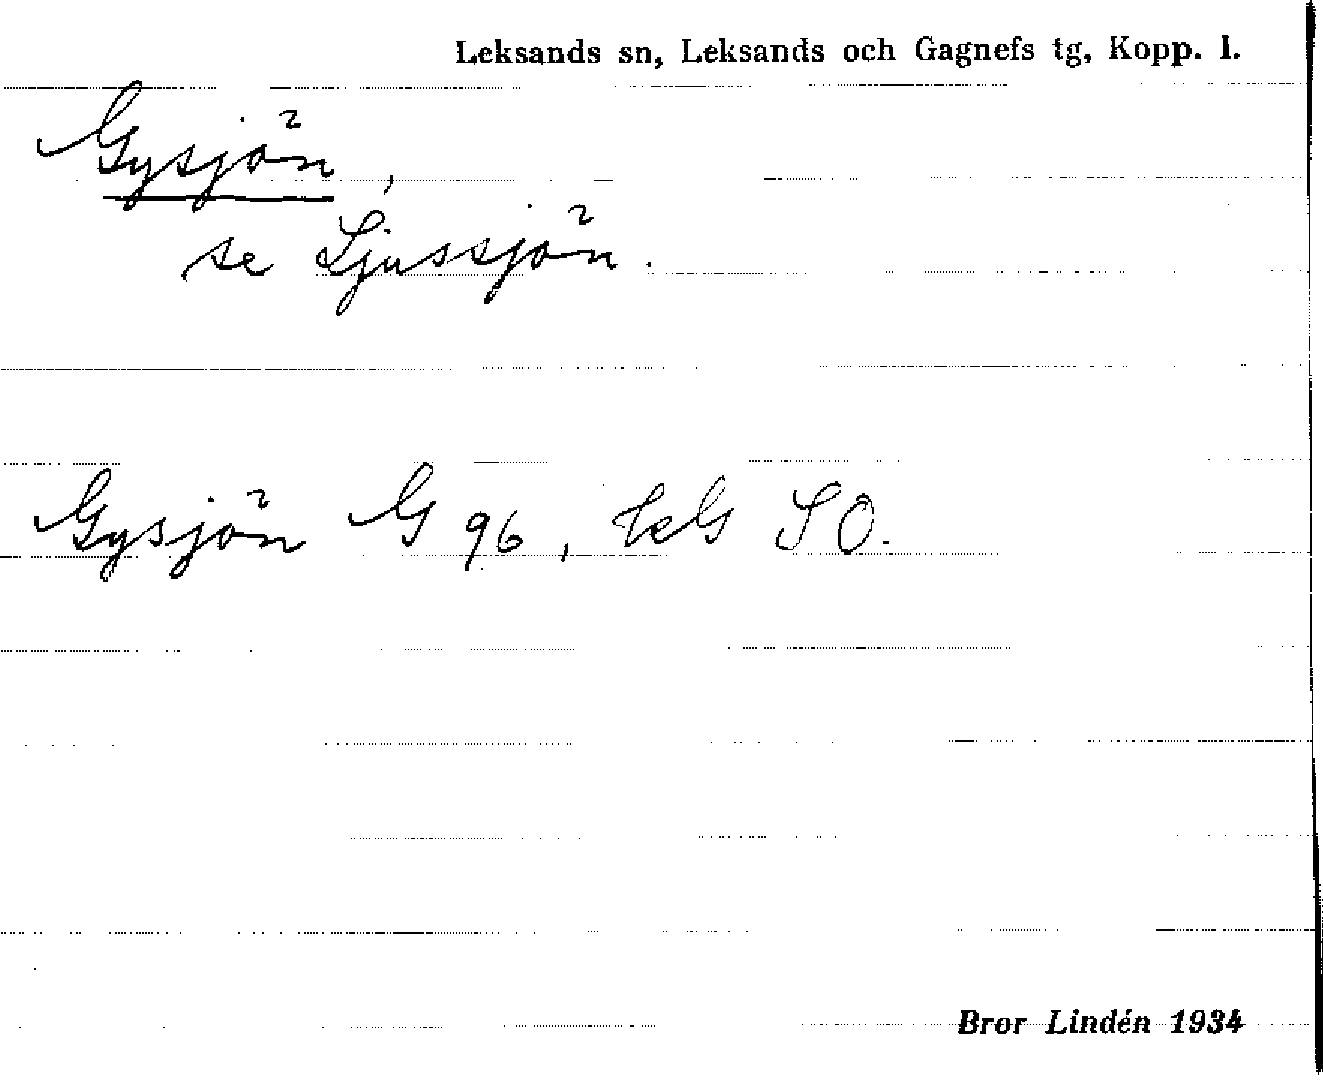 Leksands sn, Leksands och Gagnefs tg, Kopp. l.
Gysjön,
se Ljussjön.
Gysjön G 96, kbG SO.
Bror Lindén 1934